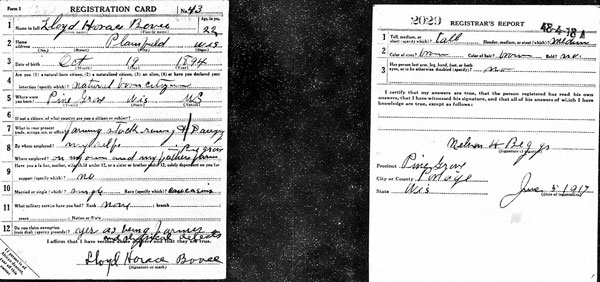 Form 1 REGISTRATION CARD No. 43
1 Name in full Lloyd Horace Bovee Age, in yrs. 22
2 Home address Plainfield Wis
3 Date of birth Oct 19 1894
4 Are you (1) a natural-born citizen, (2) a naturalized citizen, (3) an alien, (4) or have you declared your
intention (specify which)? natural born citizen
5 Where were you born? Pine Grove Wis US
6 If not a citizen, of what country are you a citizen or subject?
7 What is your present trade, occupation, or office? farming stock
8 By whom employed? my self
Where employed? on my own and my fathers farm
9 Have you a father, mother, wife, child under 12, or a sister or brother under 12, solely dependent on you for
support (specify which)? no
10 Married or single (which)? single Race (specify which)? Caucasian
11 What military service have you had? Rank none branch
years Nation or State
12 Do you claim exemption from draft (specify grounds)? yes as being farmer
and physical defects
I affirm that I have verified above answers and that they are true.
Lloyd Horace Bovee
(Signature or mark)
2029 REGISTRAR'S REPORT 48-4-18 A
1 Tall, medium, or short (specify which)? tall Slender, medium, or stout (which)? medium
2 Color of eyes? brown Color of hair? brown Bald? no
3 Has person lost arm, leg, hand, foot, or both
eyes, or is he otherwise disabled (specify)? no
I certify that my answers are true, that the person registered has read his own
answers, that I have witnessed his signature, and that all of his answers of which I have
knowledge are true, except as follows:
Nelson H Beggs
(Signature of registrar)
Precinct Pine Grove
City or County Portage
State Wis June 5 1917
(Date of registration)